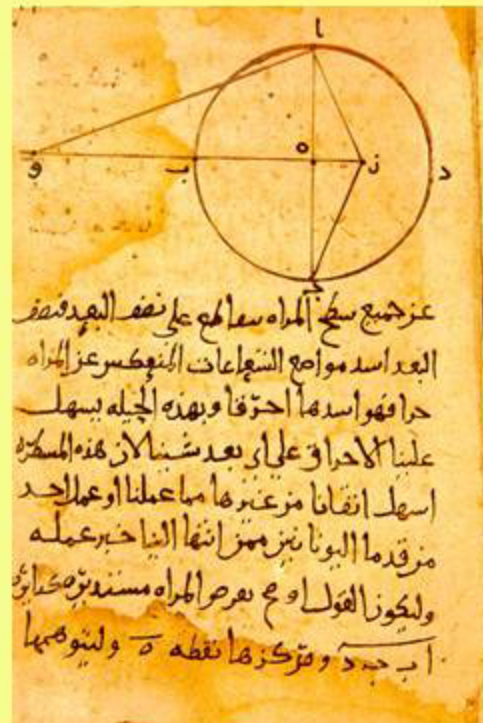 ا
و
ب
ه
ز
د
ج
عن جميع سطح المراه ىىقاطع على نصف البعد فنصف
البعد اسد مواضع الشعاعات المنعكس عن المراه
حرا فهو اسدها احرقا وبهذه الحيله يسهل
علينا الاحراق على اى بعد شينا لان هذه المسطره
اسهل اتقانا من غيرها مما عملنا او عمل احد
من قدما اليونانيين ممن انتها الينا خبر عمله
وليكون القول اوضح نفرض المراه مستديره كدايره
اب ج د ومركزها نقطه ه وليتوهمها